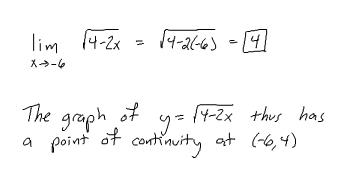 lim √4-2x = √4-2(-6) = 4
x→-6
The graph of y = √4-2x thus has
a point of continuity at (-6,4)